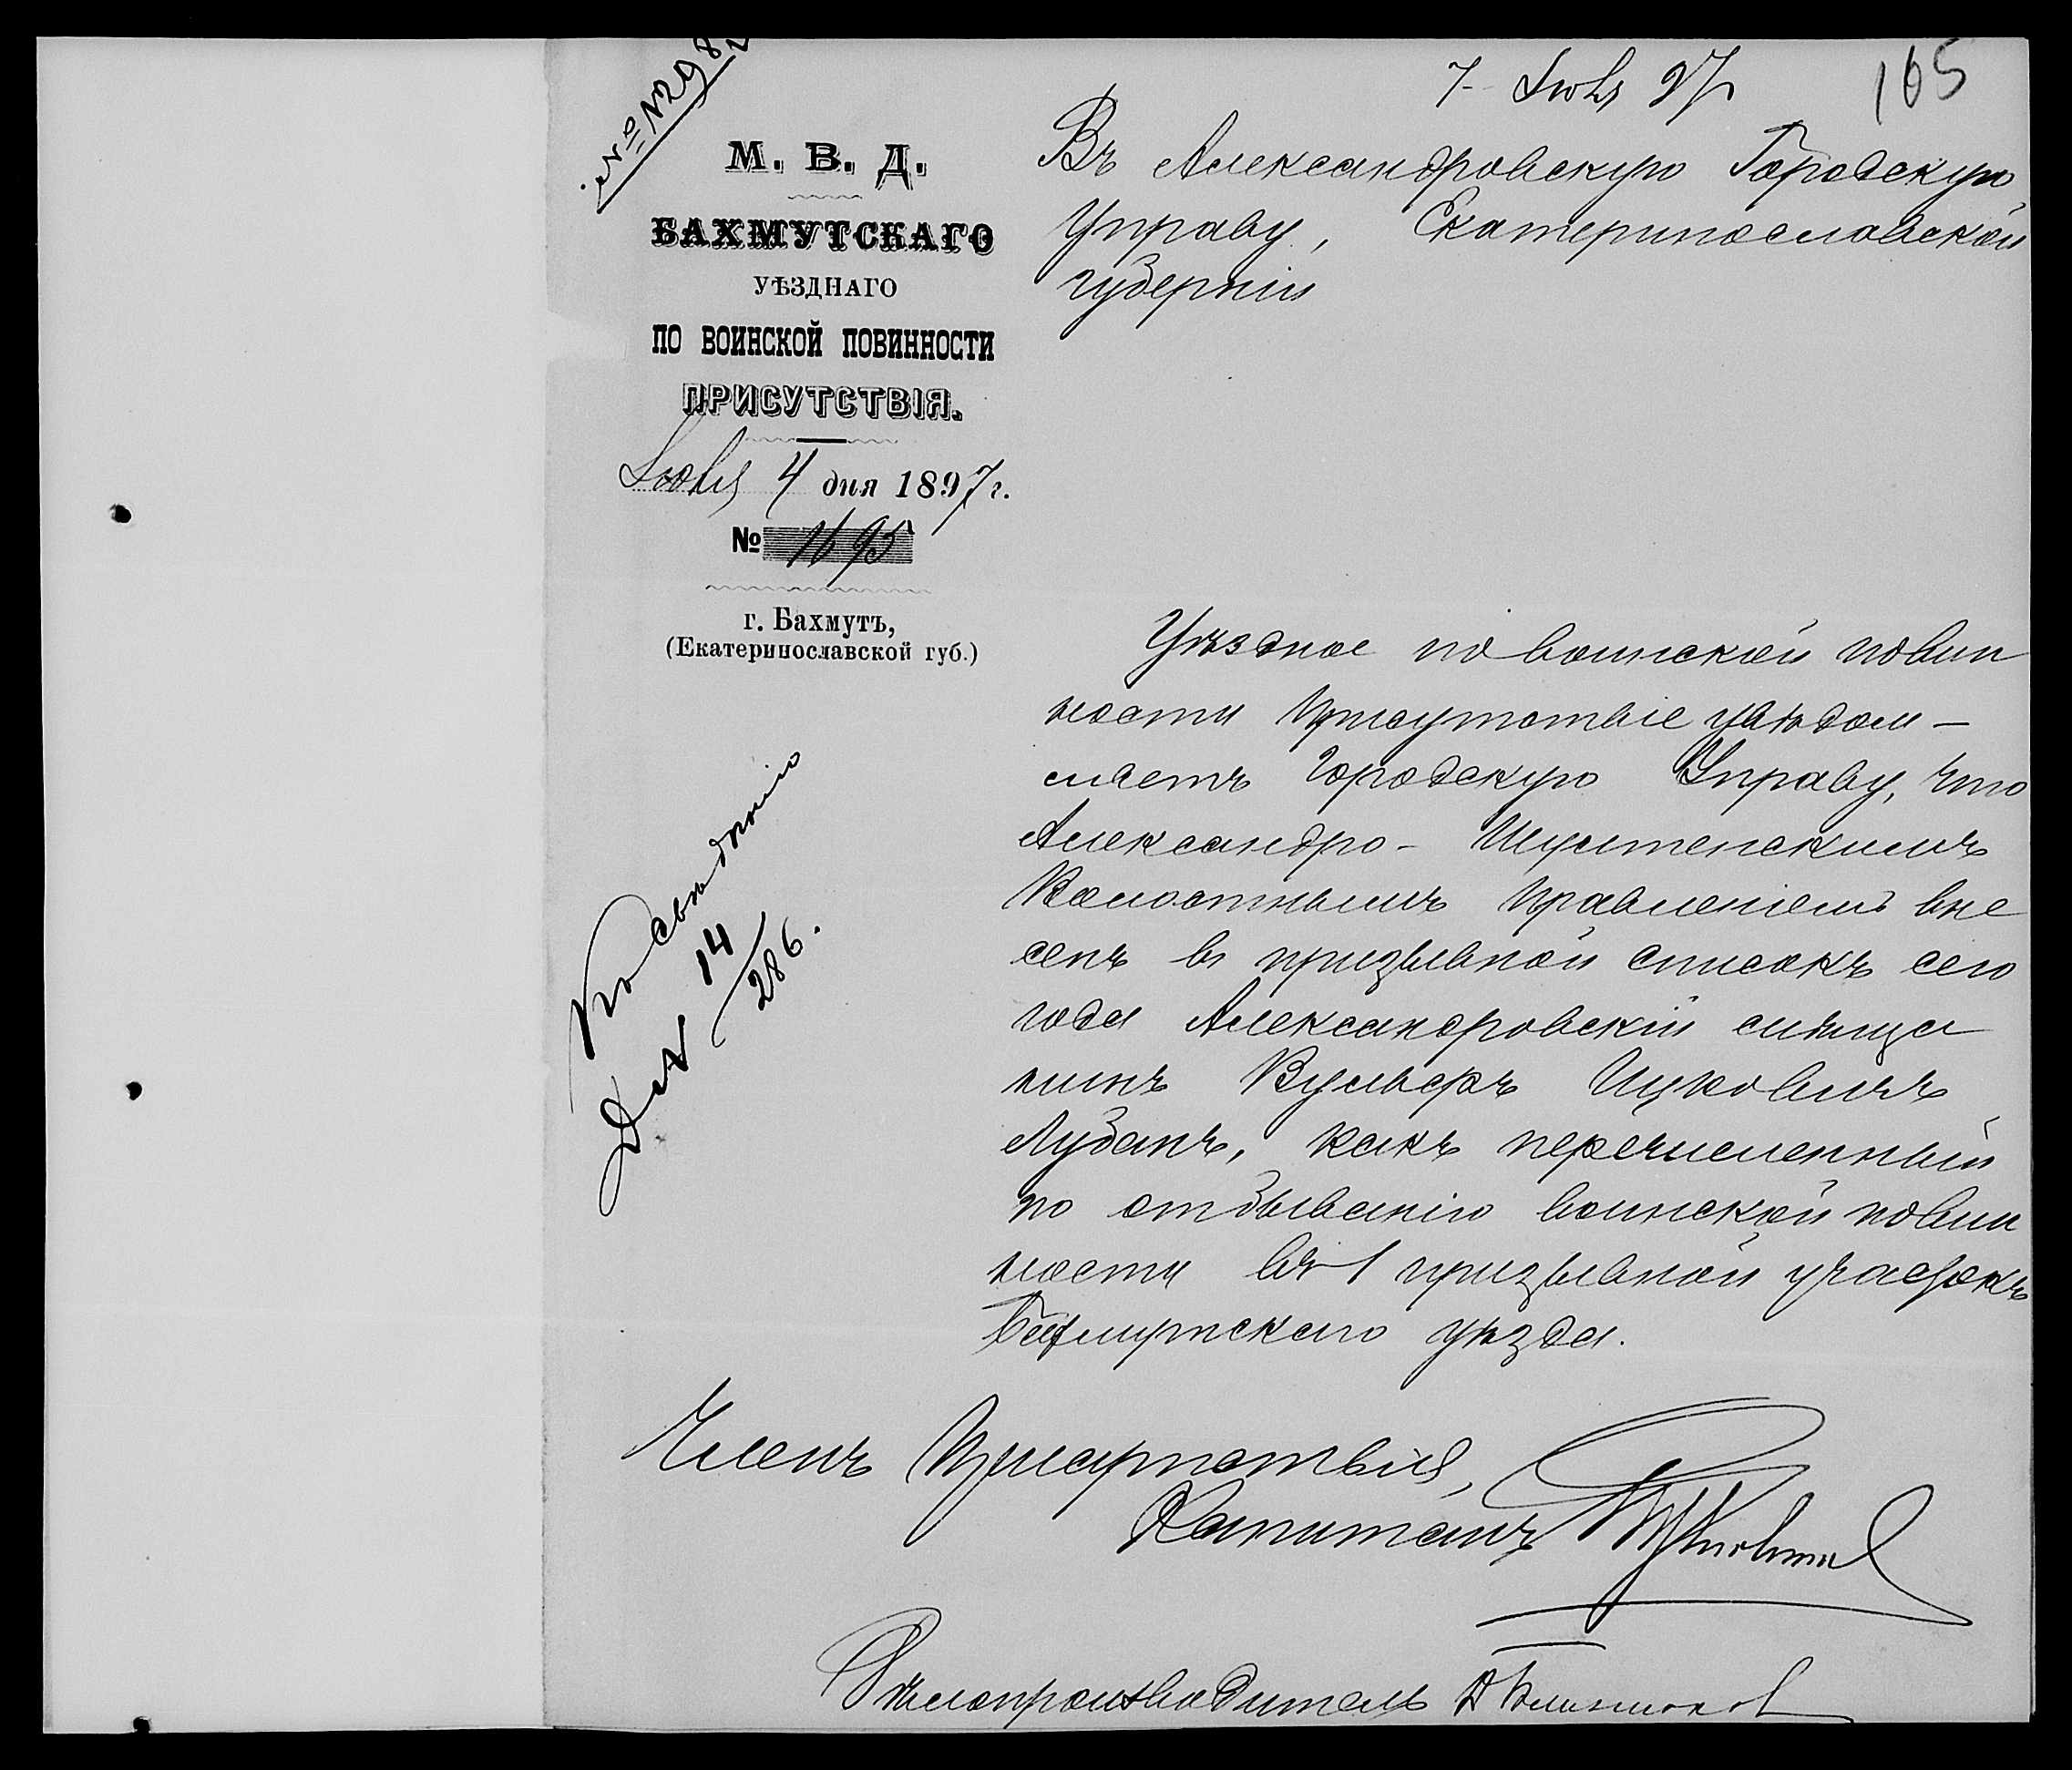 7 Іюля 97
165
М. В. Д.
БАХМУТСКАГО
УѢЗДНАГО
ПО ВОИНСКОЙ ПОВИННОСТИ
ПРИСУТСТВІЯ.
Іюля 4 дня 1897 г.
№ 1695
г. Бахмутъ,
(Екатеринославской губ.)
Къ свѣдѣнію
Дѣл 14
286.
Въ Александровскую Городскую
Управу, Екатеринославской
губерніи
Уѣздное по воинской повин
ности Присутствіе увѣдом-
ляетъ Городскую Управу, что
Александро-Шультенскимъ
Волостнымъ Правленіемъ вне
сенъ въ призывной списокъ сего
года Александровскій мѣща
нинъ Вульфъ Ицковичъ
Лубанъ, какъ перечисленный
по отбыванію воинской повин
ности въ 1 призывной участокъ
Бахмутскаго уѣзда.
Членъ Присутствія,
Капитанъ
Дѣлопроизводитель